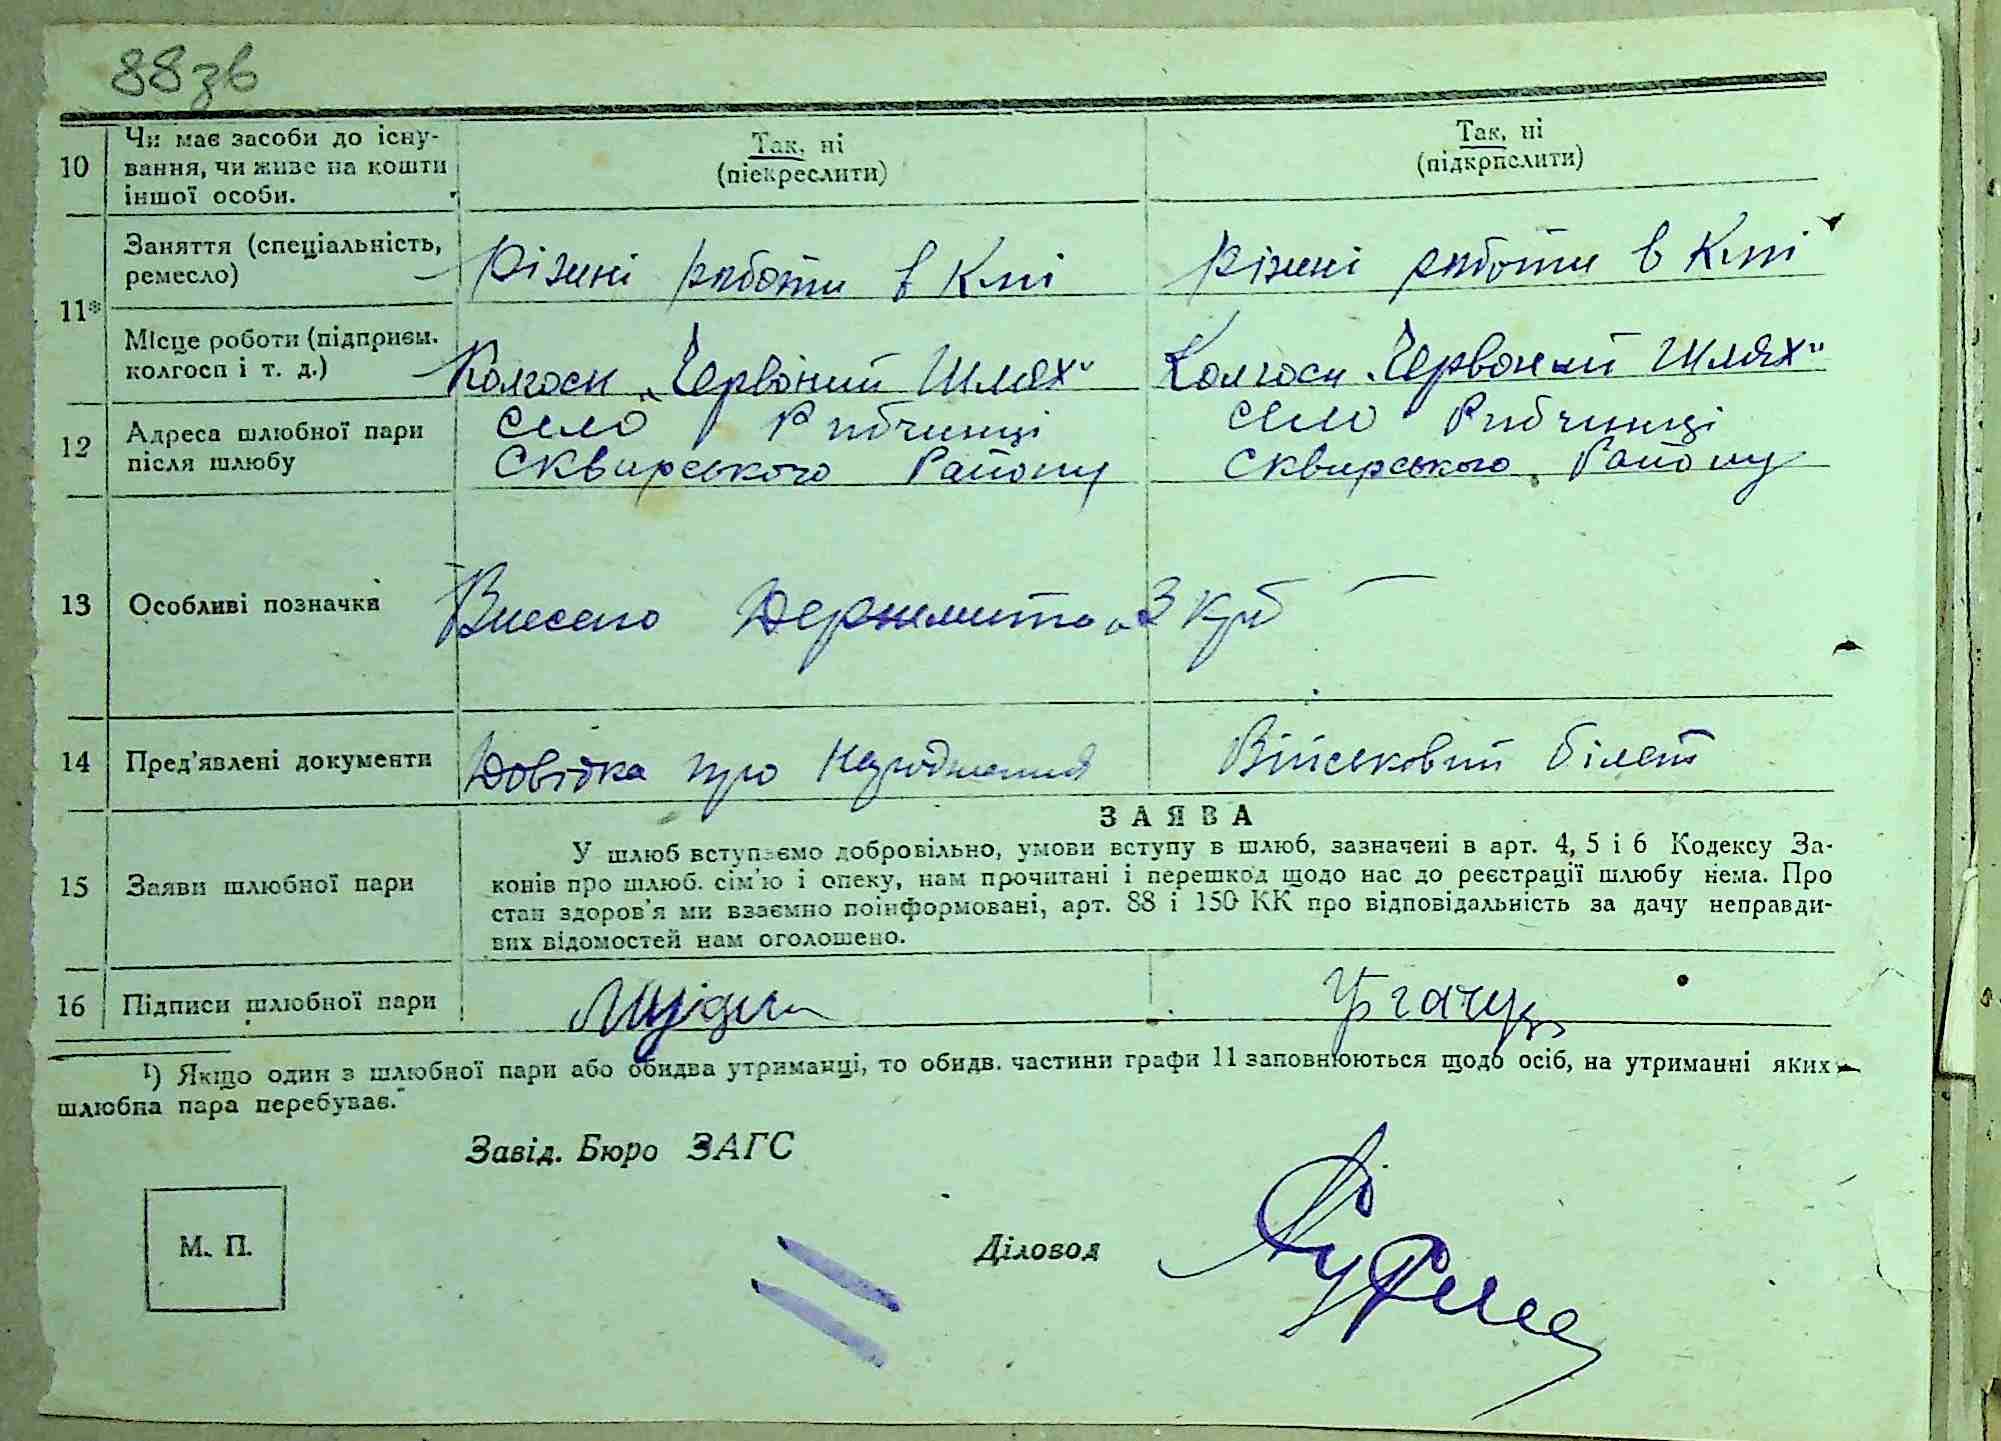 88зв
10 Чи має засоби до існу-
вання, чи живе на кошти
іншої особи.
Так, ні
(піекреслити)
Так, ні
(підкрпслити)
11*
Заняття (спеціальність,
ремесло)
Різині роботи в К-пі
різині роботи в К-пі
Місце роботи (підприєм.
колгосп і т. д.)
Колгосп „Червоний Шлях"
Колгосп „Червоний Шлях"
12 Адреса шлюбної пари
після шлюбу
село Рибчинці
Сквирського Району
село Рибчинці
Сквирського Району
13 Особливі позначки
Внесено Держмито 3 крб
14 Пред'явлені документи
Довідка про Народження
Військовий білет
15 Заяви шлюбної пари
ЗАЯВА
У шлюб вступаємо добровільно, умови вступу в шлюб, зазначені в арт. 4, 5 і 6 Кодексу За-
конів про шлюб. сім'ю і опеку, нам прочитані і перешкод щодо нас до реєстрації шлюбу нема. Про
стан здоров'я ми взаємно поінформовані, арт. 88 і 150 КК про відповідальність за дачу неправди-
вих відомостей нам оголошено.
16 Підписи шлюбної пари
¹) Якщо один з шлюбної пари або обидва утриманці, то обидв. частини графи 11 заповнюються щодо осіб, на утриманні яких
шлюбна пара перебуває.
Завід. Бюро ЗАГС
М. П.
Діловод